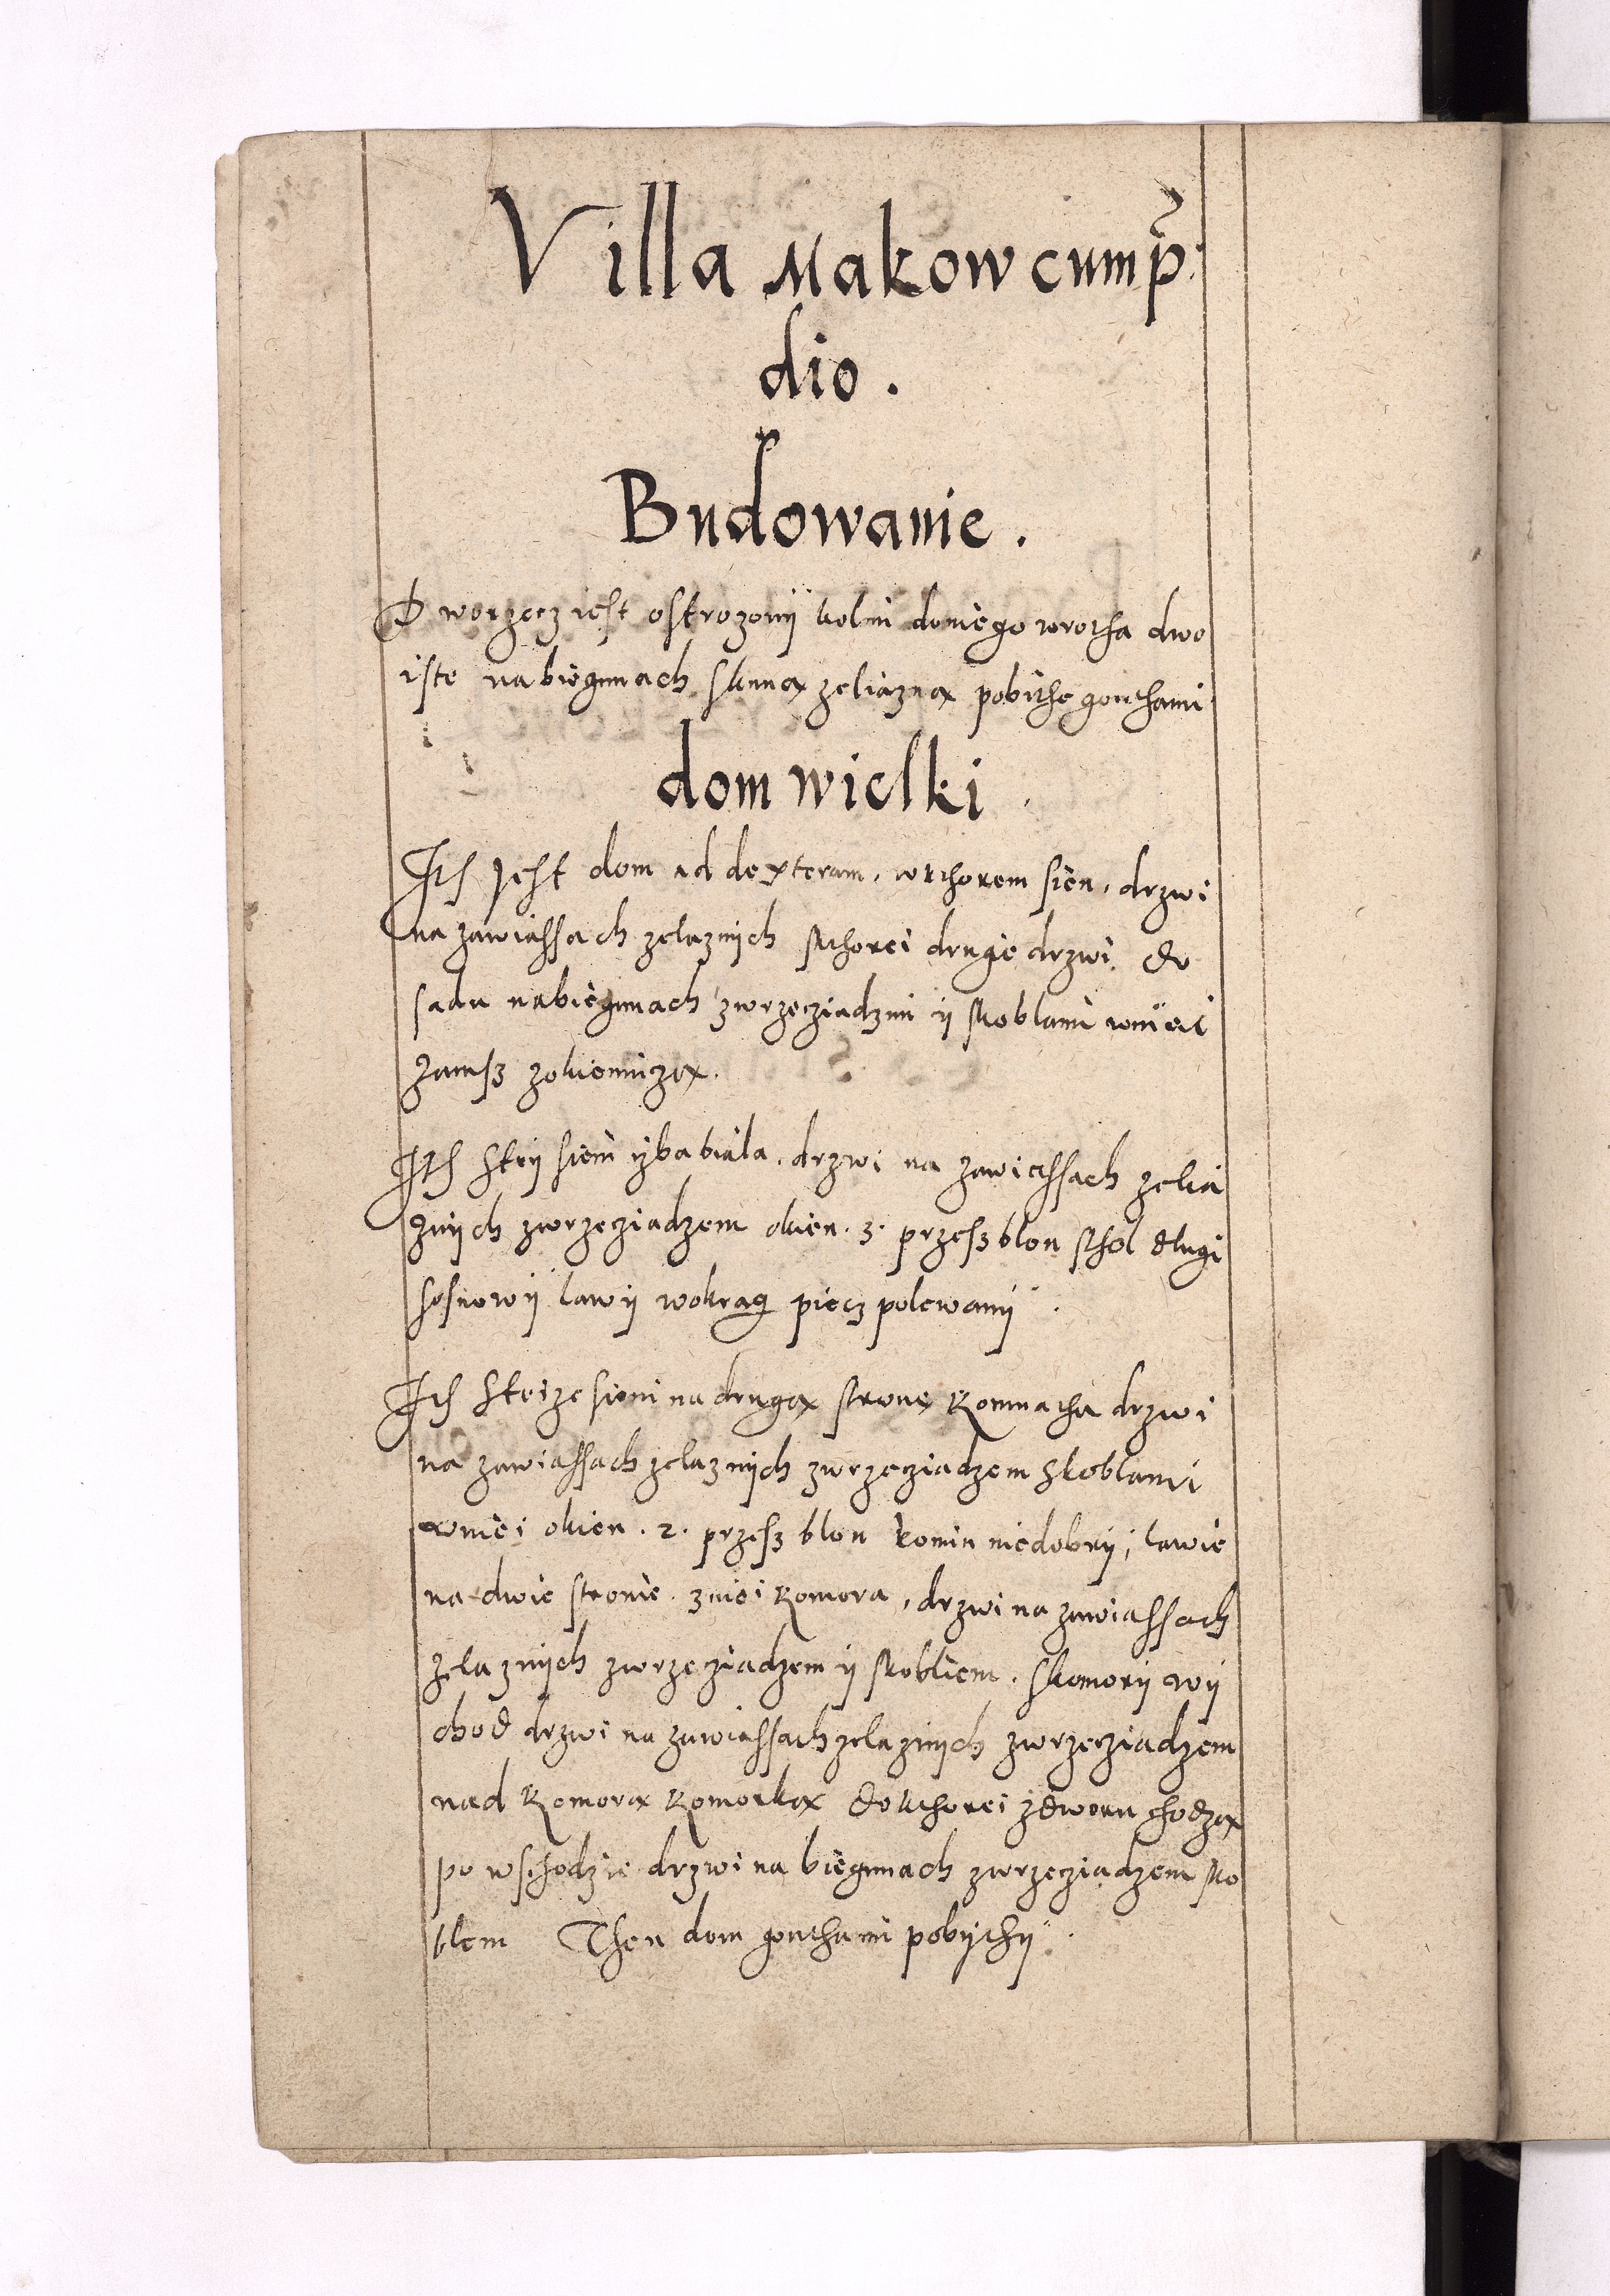 Villa Makow cum p̃
dio.
Budowanie.
Dworzecz iest ostrozony kolmi doniego wrotha dwo
iste nabiegunach skuną zeliazną pobithe gonthami
dom wielki
Ith Jest dom ad dexteram, wkthorem sien, drzwi
na zawiassach zelaznych skthorei drugie drzwi do
sadu nabiegunach zwrzecziadzmi y skoblami wniei
zamsz zokienniczą.
Ith Sthy sieni yzba biala, drzwi na zawiassach zelia
znych zwrzecziadzem okien . 3 . przesz blon sthol dlugi
sosnowy lawy wokrag piecz polewany .
Ith Stheize sieni na drugą strone Komnatha drzwi
na zawiassach zelaznych zwrzecziadzem skoblami
wniei okien . 2 . przesz blon komin niedobry, lawie
na dwie stronie . zniei Komora, drzwi na zawiassach
zelaznych zwrzecziadzem y skobliem . skomory wy
chod drzwi na zawiassach zelaznych zwrzecziadzem
nad Komorą Komorką do kthorei zdworu chodzą
po wschodzie drzwi na biegunach zwrzecziadzem sko
blem Then dom gonthami pobythy .